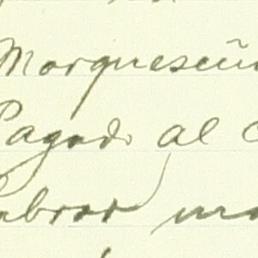 Marqueseñ
Pagado al
labrar ma